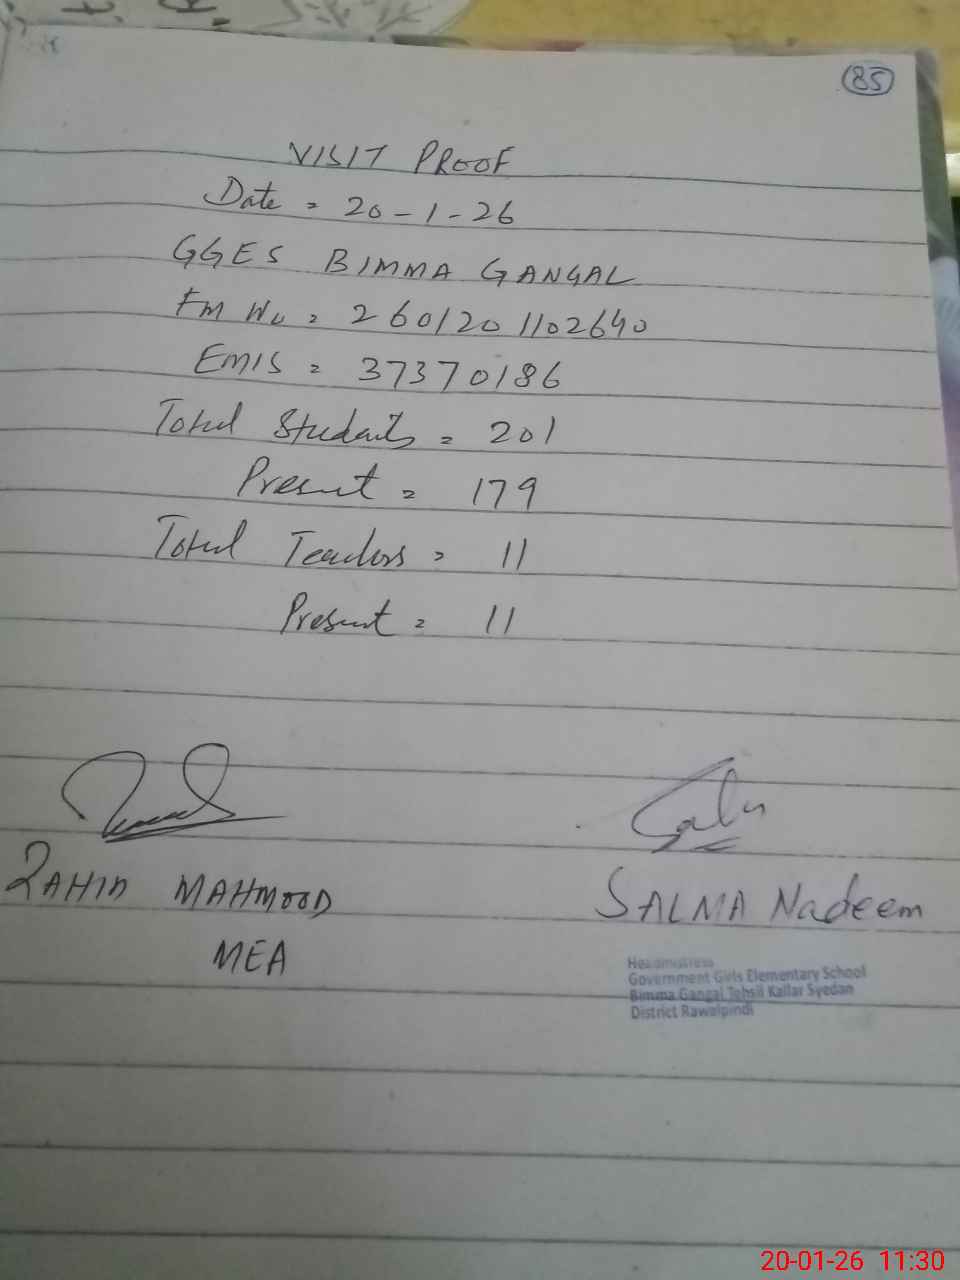 85
VISIT PROOF
Date = 20-1-26
GGES BIMMA GANGAL
FM No = 2601201102640
EMIS = 37370186
Total Students = 201
Present = 179
Total Teachers = 11
Present = 11
ZAHID MAHMOOD
MEA
SALMA Nadeem
Headmistress
Government Girls Elementary School
Bimma Gangal Tehsil Kallar Syedan
District Rawalpindi
20-01-26 11:30